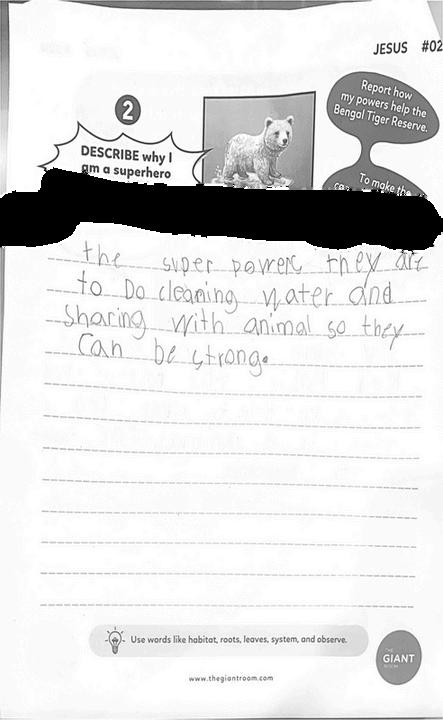 JESUS #02
2
Report how
my powers help the
Bengal Tiger Reserve.
DESCRIBE why I
am a superhero
To make the
the super powers they are
to Do cleaning water and
sharing with animal so they
can be strong.
Use words like habitat, roots, leaves, system, and observe.
THE
GIANT
ROOM
www.thegiantroom.com